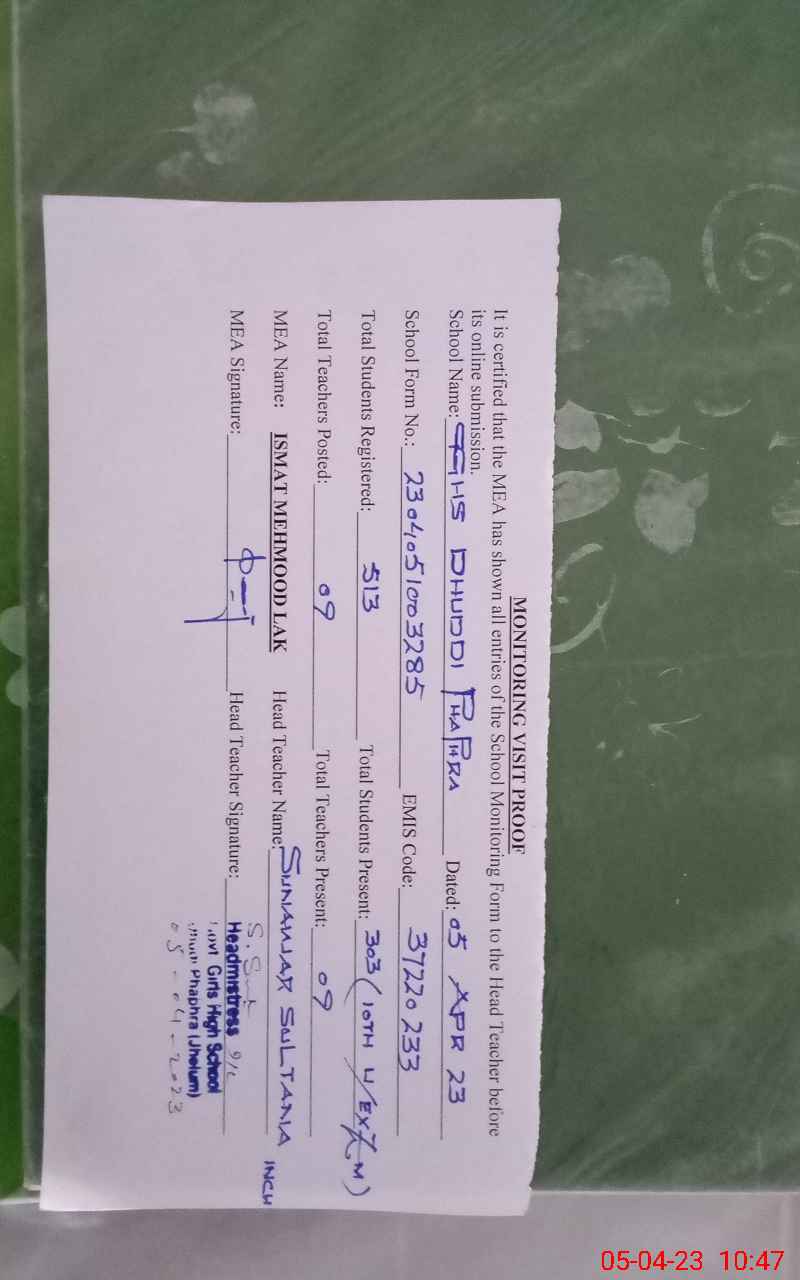 MONITORING VISIT PROOF
It is certified that the MEA has shown all entries of the School Monitoring Form to the Head Teacher before
its online submission.
School Name: GGHS DHUDDI PHAPHRA Dated: 05 APR 23
School Form No.: 2304051003285 EMIS Code: 37220233
Total Students Registered: 513 Total Students Present: 303 (10TH U/EXAM)
Total Teachers Posted: 09 Total Teachers Present: 09
MEA Name: ISMAT MEHMOOD LAK Head Teacher Name: SUNAWAR SULTANA INCH
MEA Signature: Head Teacher Signature:
Headmistress
Govt Girls High School
Phaphra (Jhelum)
05-04-2023
05-04-23 10:47